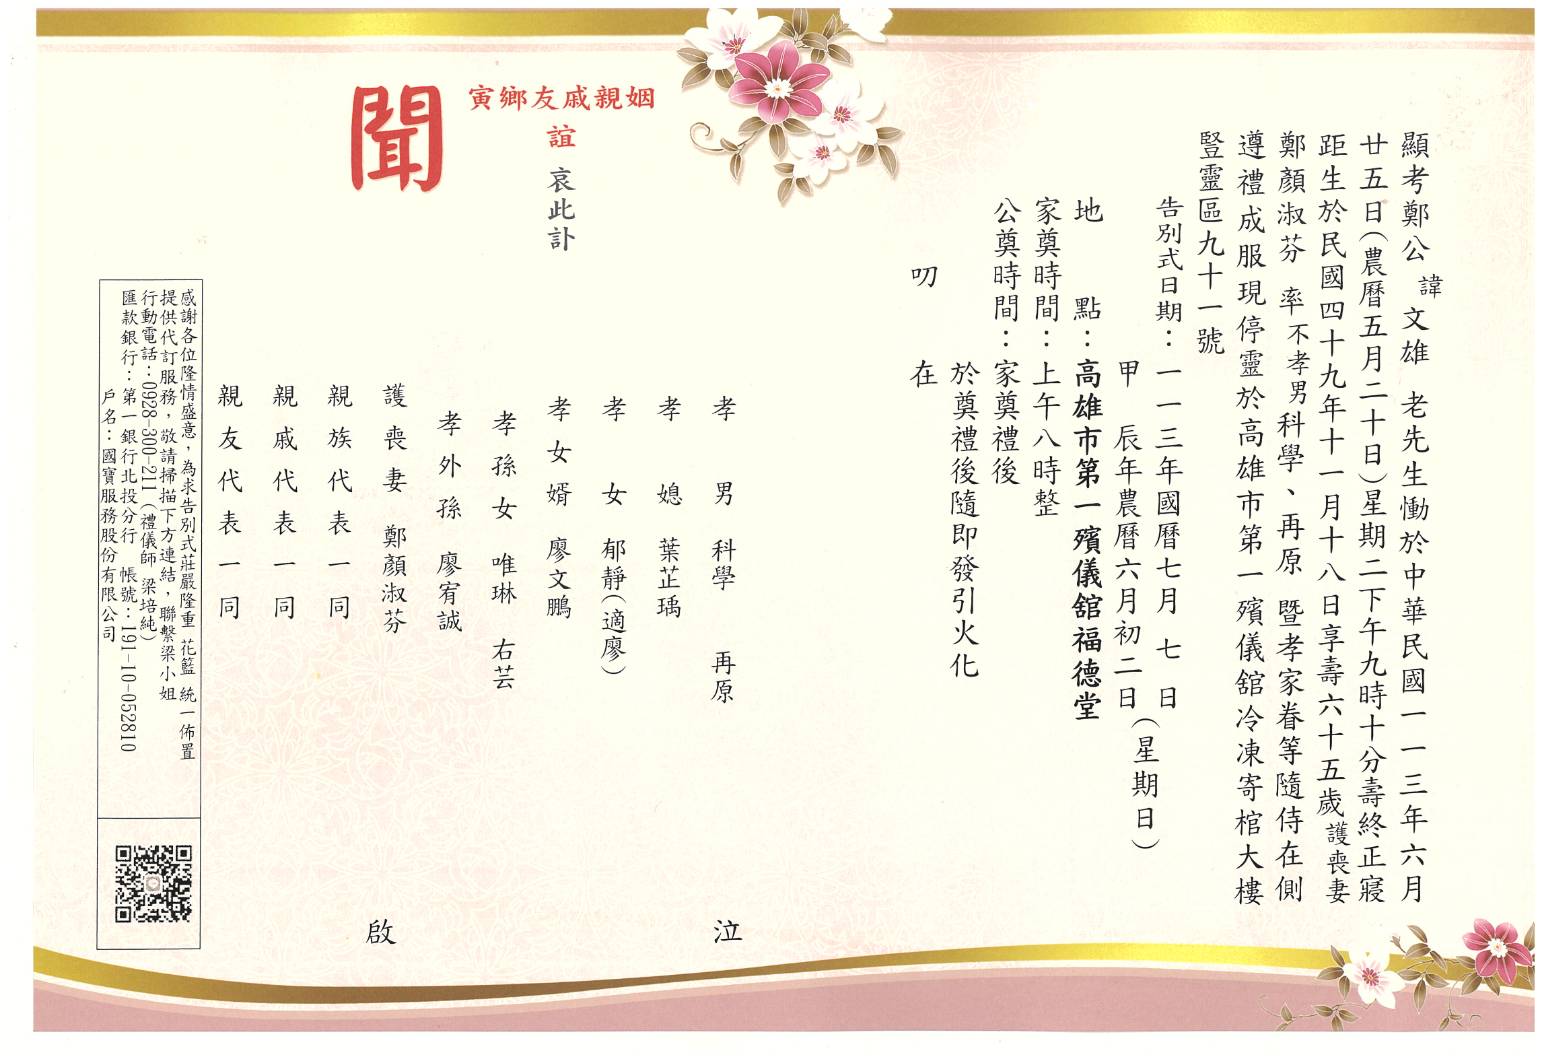 顯考鄭公 諱 文雄 老先生慟於中華民國一一三年六月
廿五日(農曆五月二十日)星期二下午九時十分壽終正寢
距生於民國四十九年十一月十八日享壽六十五歲 護喪妻
鄭顏淑芬 率 不孝男 科學、再原 暨孝家眷等隨侍在側
遵禮成服現停靈於高雄市第一殯儀舘冷凍寄棺大樓
豎靈區九十一號
告別式日期：一一三年國曆七月 七 日
甲 辰年農曆六月初二日
(星期日)
地 點：高雄市第一殯儀舘福德堂
家奠時間：上午八時整
公奠時間：家奠禮後
於奠禮後隨即發引火化
叨 在
姻親戚友鄉寅
誼
哀此訃
聞
孝 男 科學 再原
孝 媳 葉芷瑀
孝 女 郁靜(適廖)
孝女婿 廖文鵬
孝孫女 唯琳 右芸
孝外孫 廖宥誠
泣
護喪妻 鄭顏淑芬
親族代表一同
親戚代表一同
親友代表一同
啟
感謝各位隆情盛意，為求告別式莊嚴隆重 花籃 統一佈置
提供代訂服務，敬請掃描下方連結，聯繫梁小姐
行動電話：0928-300-211 (禮儀師 梁培純)
匯款銀行：第一銀行北投分行 帳號：191-10-052810
戶名：國寶服務股份有限公司